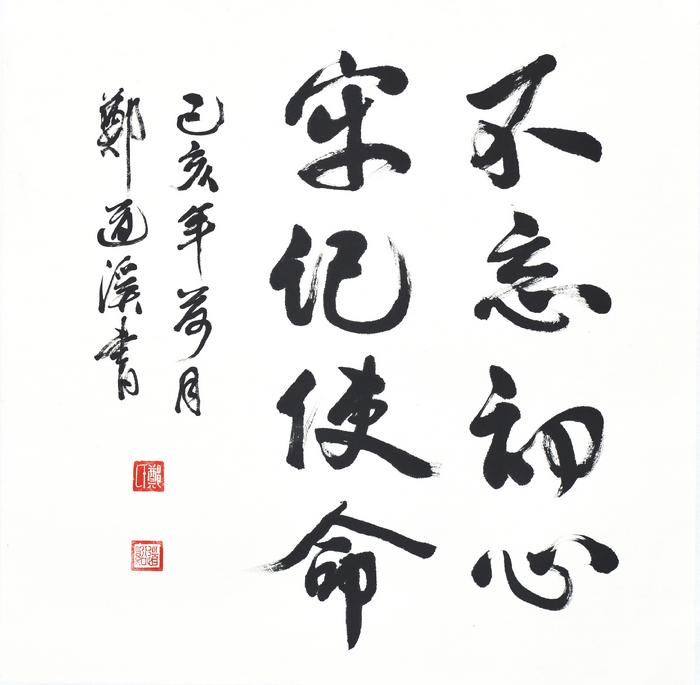 不忘初心
牢记使命
己亥年荷月
鄭道溪书